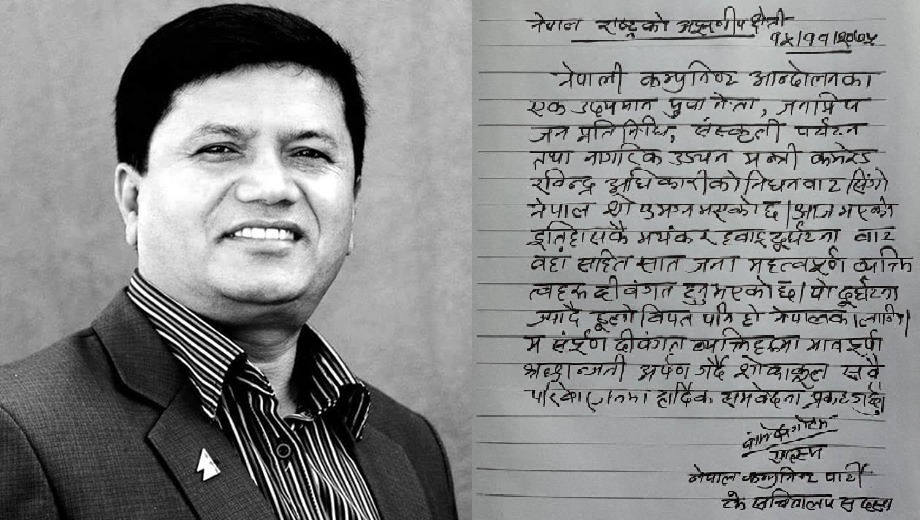 नेपाल राष्ट्रको अपूरणीय क्षति
१५।११।२०७५
नेपाली कम्युनिष्ट आन्दोलनका
एक उदयमान युवा नेता, जनप्रिय
जन प्रतिनिधि, संस्कृती पर्यटन
तथा नागरिक उड्यन मन्त्री कमरेड
रविन्द्र अधिकारीको निधनवाट सिंगो
नेपाल शोकमग्न भएको छ। आज भएको
इतिहासकै भयंकर हवाइ दूर्घटना वाट
वहाँ सहित सात जना महत्वपूर्ण व्यक्ति
त्वहरू दीवंगत हुनुभएको छ। यो दूर्घटना
ज्यादै ठूलो विपत पनि हो नेपालका लागि।
म संपूर्ण दीवंगत व्यक्तिहरूमा भावपूर्ण
श्रद्धान्जली अर्पण गर्दै शोकाकूल सवै
परिवारजनमा हार्दिक समवेदना प्रकट गर्दछु।
वामदेव गौतम
नेपाल कम्युनिष्ट पार्टी
के सचिवालय सदस्य